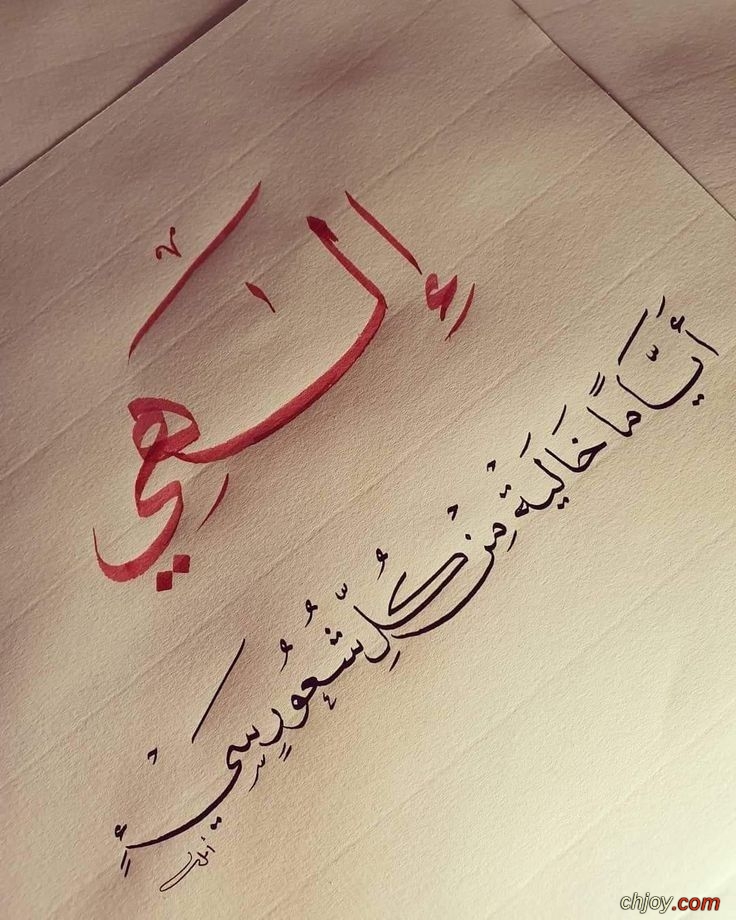 إِلَهِي
أَيَّامًا خَالَيَة مِنْ كُلِّ شُعُورٍ سِيْءٍ
chjoy.com